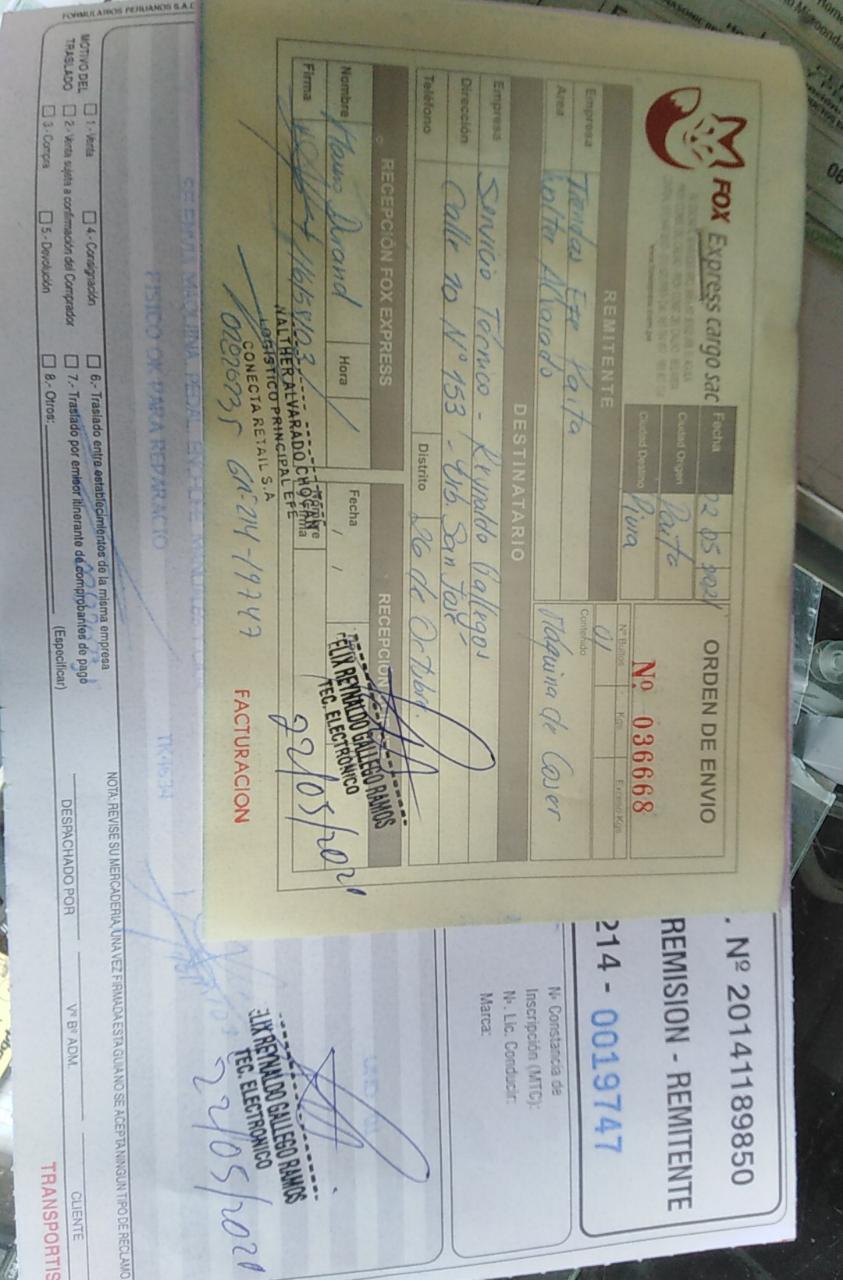 FOX Express cargo sac
ORDEN DE ENVIO
Nº 036668
Fecha
Ciudad Origen Paita
Ciudad Destino Piura
REMITENTE
Empresa Tiendas Efe Paita
Area Walter Alvarado
Nº Bultos 01
Kgs.
Exceso Kgs.
Contenido
Máquina de Coser
DESTINATARIO
Empresa Servicio Técnico - Reynaldo Gallegos
Dirección Calle 10 Nº 153 - Urb. San José
Teléfono
Distrito 26 de Octubre.
RECEPCIÓN FOX EXPRESS
Nombre
Durand
Hora
Firma
RECEPCIÓN
Fecha
FELIX REYNALDO GALLEGO RAMOS
TEC. ELECTRONICO
22/05/2021
WALTHER ALVARADO CHOGAN
LOGISTICO PRINCIPAL EFE
CONECTA RETAIL S.A
214-19747
FACTURACION
. Nº 20141189850
REMISION - REMITENTE
214 - 0019747
Nº Constancia de
Inscripción (MTC):
Nº. Lic. Conducir:
Marca:
ELIX REYNALDO GALLEGO RAMOS
TEC. ELECTRONICO
22/05/2021
SE ENVIA MAQUINA
FISICO OK PARA REPARACIO
FORMULARIOS PERUANOS S.A.C
MOTIVO DEL
TRASLADO
1.- Venta
2.- Venta sujeta a confirmación del Comprador
3.- Compra
4.- Consignación
5.- Devolución
6.- Traslado entre establecimientos de la misma empresa
7.- Traslado por emisor itinerante de comprobantes de pago
8.- Otros:
(Especificar)
NOTA: REVISE SU MERCADERIA, UNA VEZ FIRMADA ESTA GUIA NO SE ACEPTA NINGUN TIPO DE RECLAMO
DESPACHADO POR
Vº Bº ADM.
CLIENTE
TRANSPORTIS